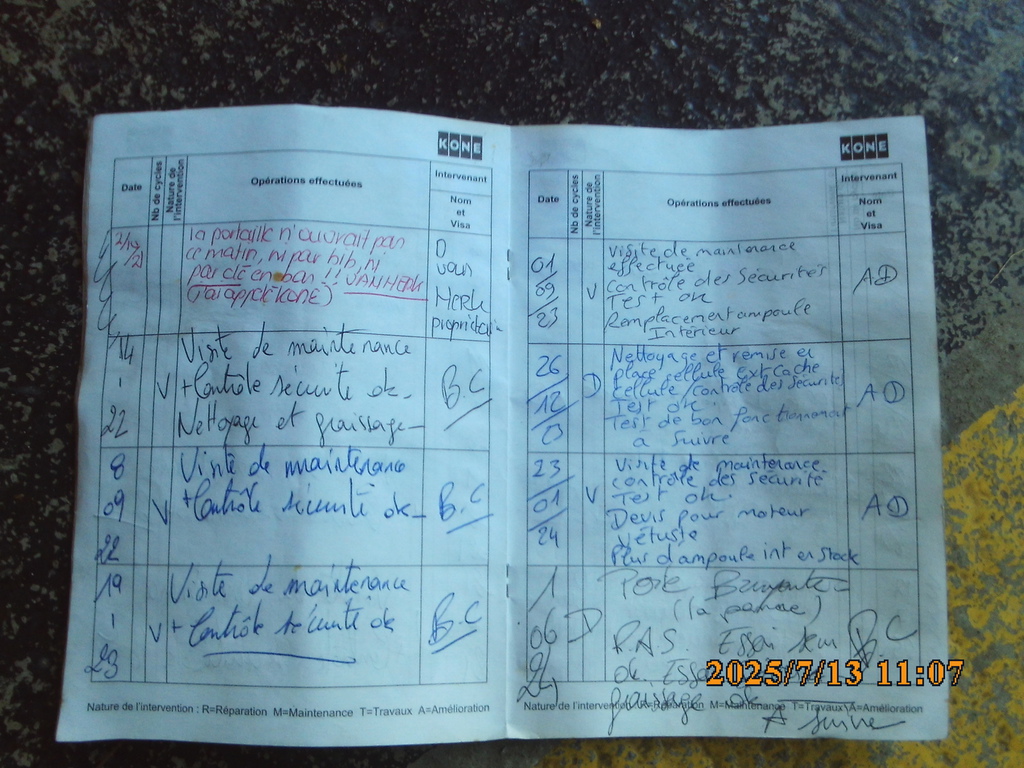 KONE
Date
Nb de cycles
Nature de l'intervention
Opérations effectuées
Intervenant
Nom
et
Visa
la portaille n'ouvrait pas
ce matin, ni par bib, ni
par clé en bas !! VANHERK
(j'ai appelé Kone)
D
van
HERK
propriétaire
14
1
22
V
Visite de maintenance
+ Contrôle sécurité ok
Nettoyage et graissage
B.C
8
09
22
V
Visite de maintenance
+ Contrôle sécurité ok
B.C
19
1
23
V
Visite de maintenance
+ Contrôle sécurité ok
B.C
Nature de l'intervention : R=Réparation M=Maintenance T=Travaux A=Amélioration
KONE
Date
Nb de cycles
Nature de l'intervention
Opérations effectuées
Intervenant
Nom
et
Visa
01
09
23
V
Visite de maintenance
effectuée
contrôle des sécurités
Test ok
Remplacement ampoule
Intérieur
AD
26
12
23
D
Nettoyage et remise en
place cellule ext cache
cellule/contrôle des sécurités
Test ok.
Test de bon fonctionnement
à suivre
AD
23
01
24
V
Visite de maintenance
contrôle des sécurité
Test ok.
Devis pour moteur
vétuste
Plus d'ampoule int en stock
AD
1
06
24
D
Porte Bruyante
R.A.S. Essai
ok. Essai
graissage ok
A suivre
B.C
Nature de l'intervention : R=Réparation M=Maintenance T=Travaux A=Amélioration
2025/7/13 11:07